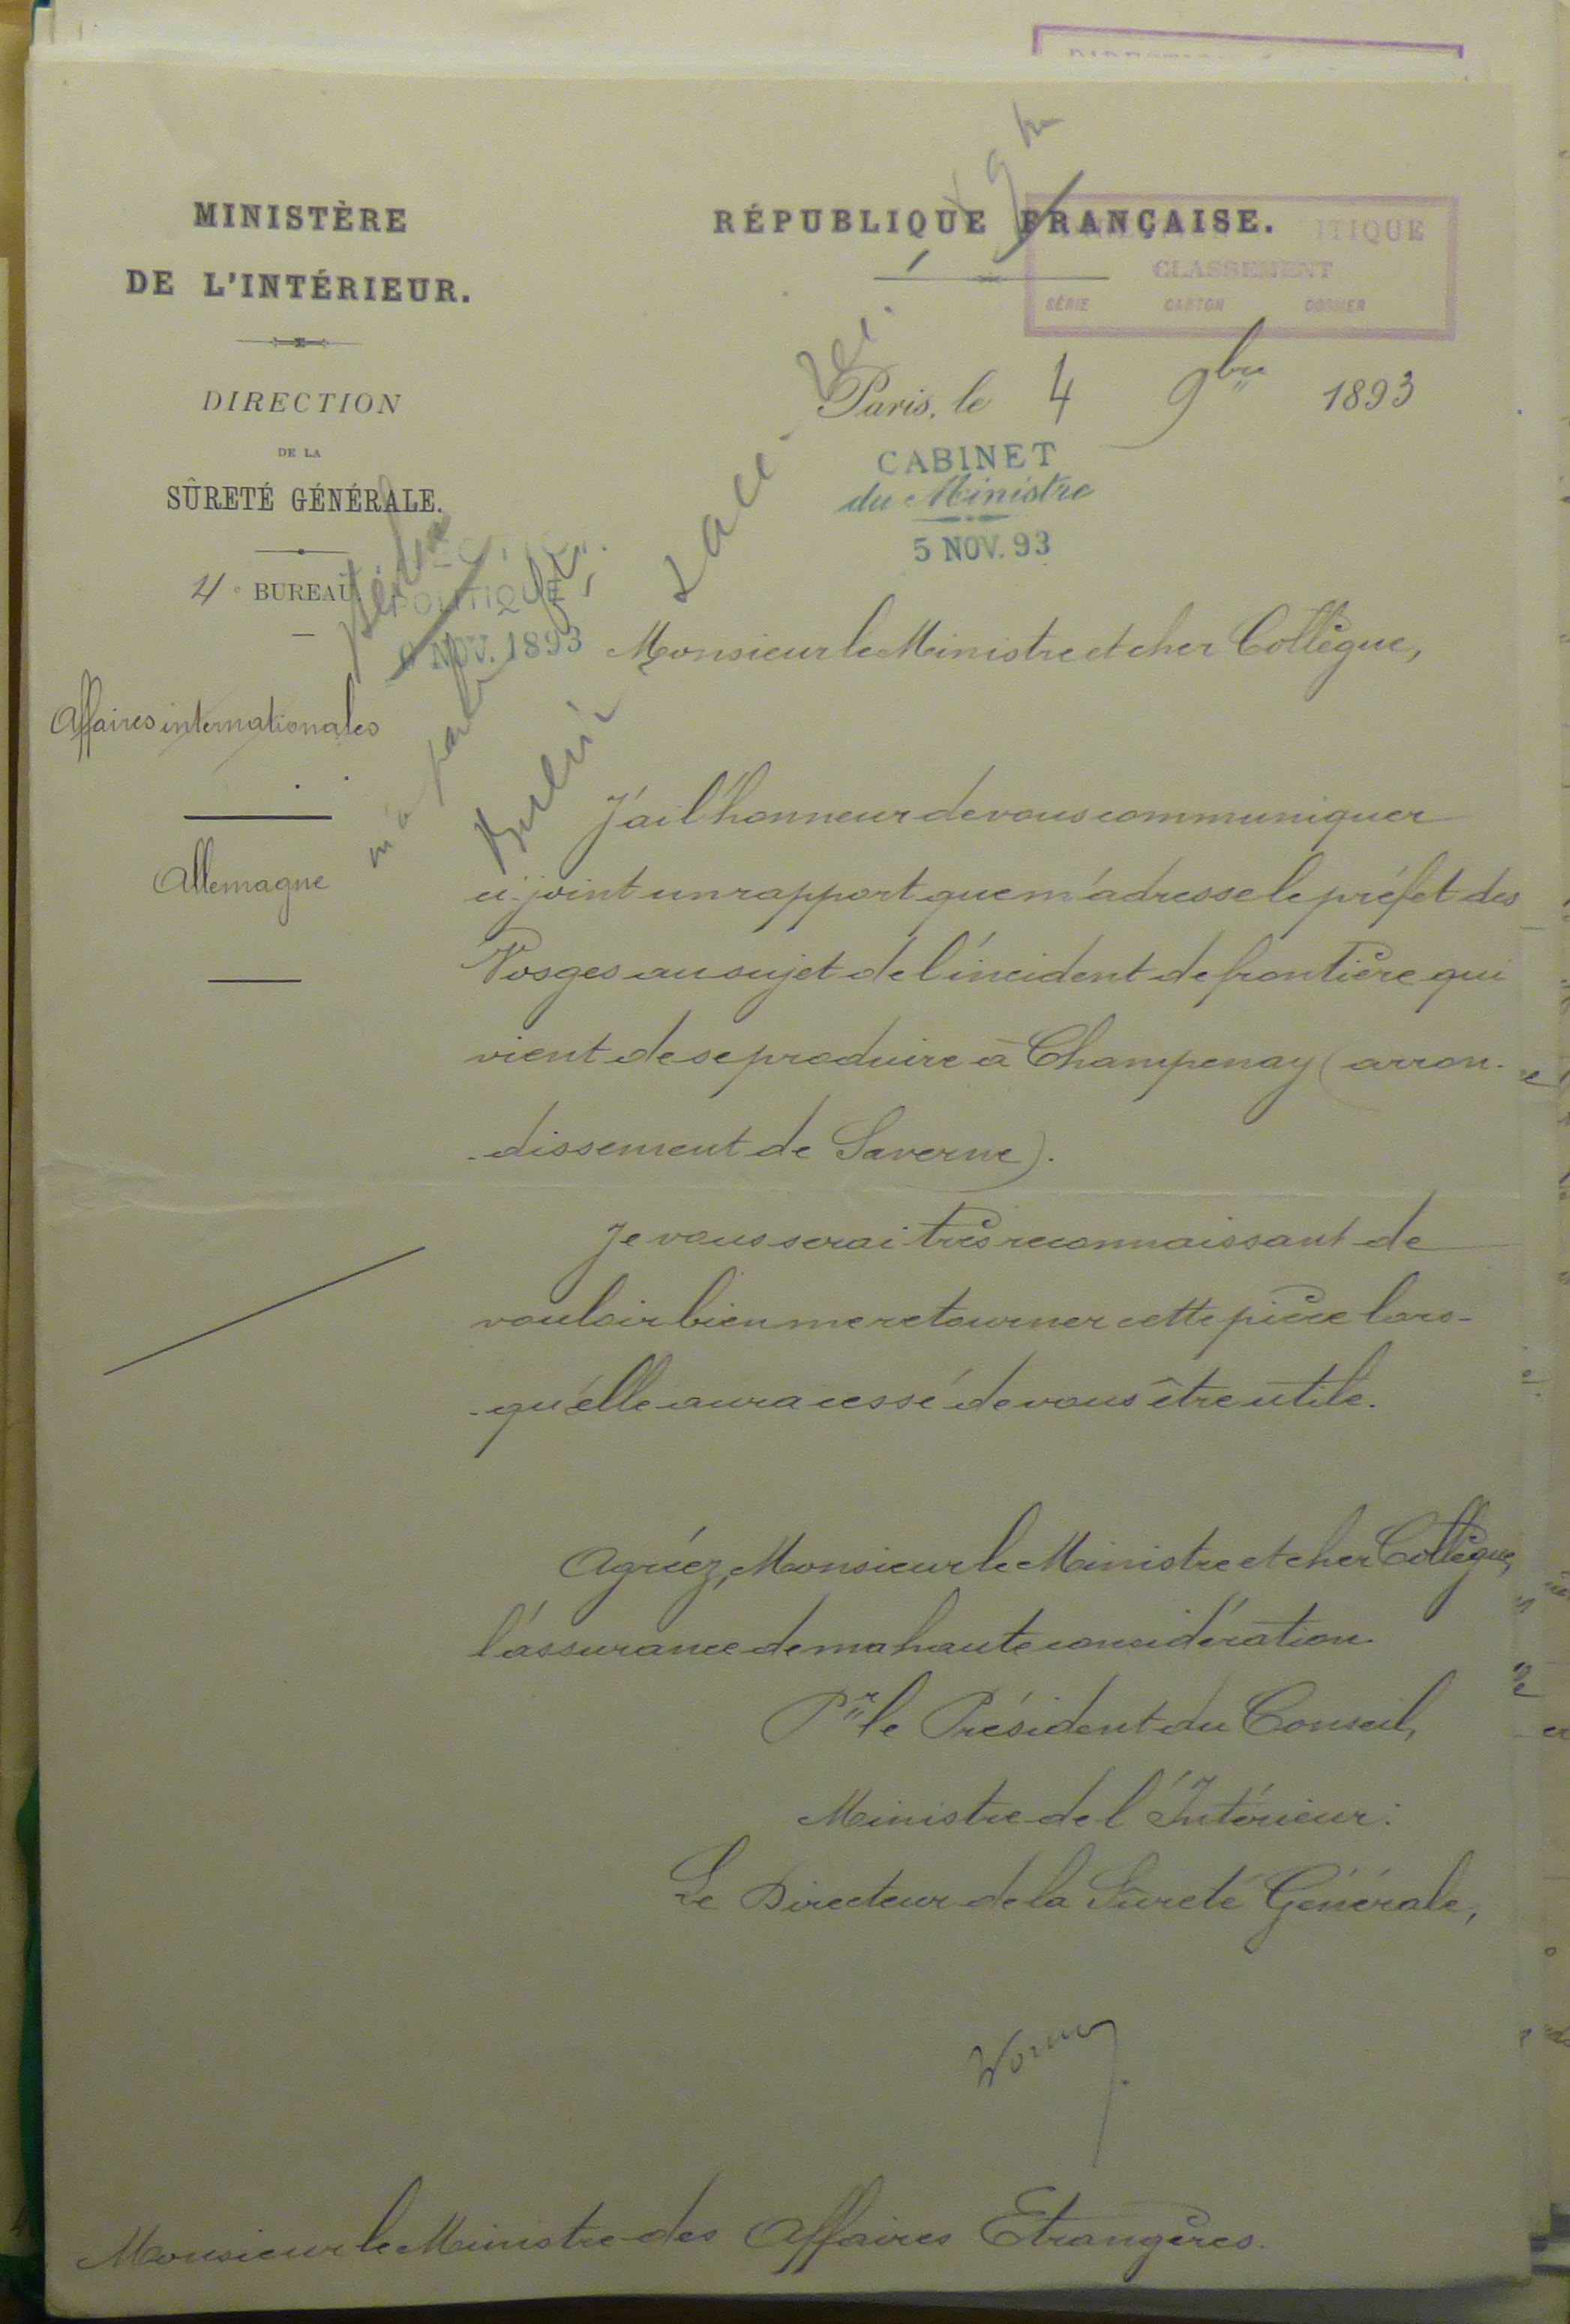 MINISTÈRE
DE L'INTÉRIEUR.
DIRECTION
DE LA
SÛRETÉ GÉNÉRALE.
4e BUREAU.
Affaires internationales
Allemagne
RÉPUBLIQUE FRANÇAISE.
POLITIQUE
CLASSEMENT
SÉRIE CARTON DOSSIER
Paris, le 4 9bre 1893
CABINET
du Ministre
5 NOV. 93
POLITIQUE
NOV. 1893
Berlin
Monsieur le Ministre et cher Collègue,
J'ai l'honneur de vous communiquer
ci-joint un rapport que m'adresse le préfet des
Vosges au sujet de l'incident de frontière qui
vient de se produire à Champenay (arron-
-dissement de Saverne).
Je vous serai très reconnaissant de
vouloir bien me retourner cette pièce lors-
-qu'elle aura cessé de vous être utile.
Agréez, Monsieur le Ministre et cher Collègue,
l'assurance de ma haute considération.
Pr le Président du Conseil,
Ministre de l'Intérieur:
Le Directeur de la Sûreté Générale,
Monsieur le Ministre des Affaires Etrangères.